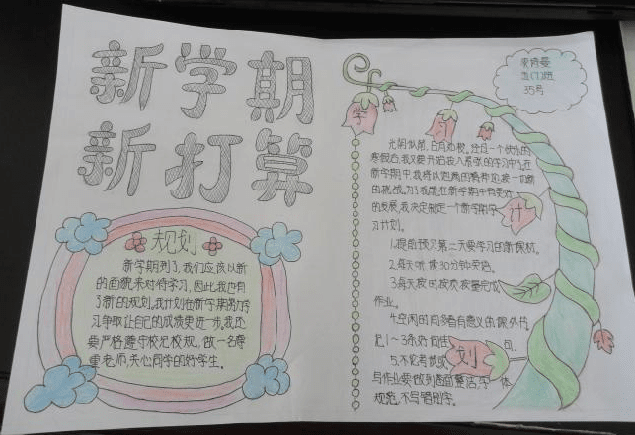 新学期
新打算
规划
新学期到了，我们应该以新
的面貌来对待学习，因此我也有
了新的规划，我计划在新学期努力学
习争取让自己的成绩更进一步，我还
要严格遵守校纪校规，做一名尊
重老师，关心同学的好学生。
五(1)班
35号
学
习
计
划
光阴似箭，日月如梭。经过一个快乐的
寒假后，我又要开始投入紧张的学习中，在
新学期中，我将以饱满的精神迎接一切新
的挑战。为了我能在新学期中有更好
的发展，我决定制定一个新学期学
习计划。
1.提前预习第二天要学习的新课材。
2.每天听读30分钟英语。
3.每天按时按质按量完成
作业。
4.空闲的时候看有意义的课外书，
记1～3条好词佳句。
5.不论考试或
写作业要做到卷面整洁，字体
规范，不写错别字。